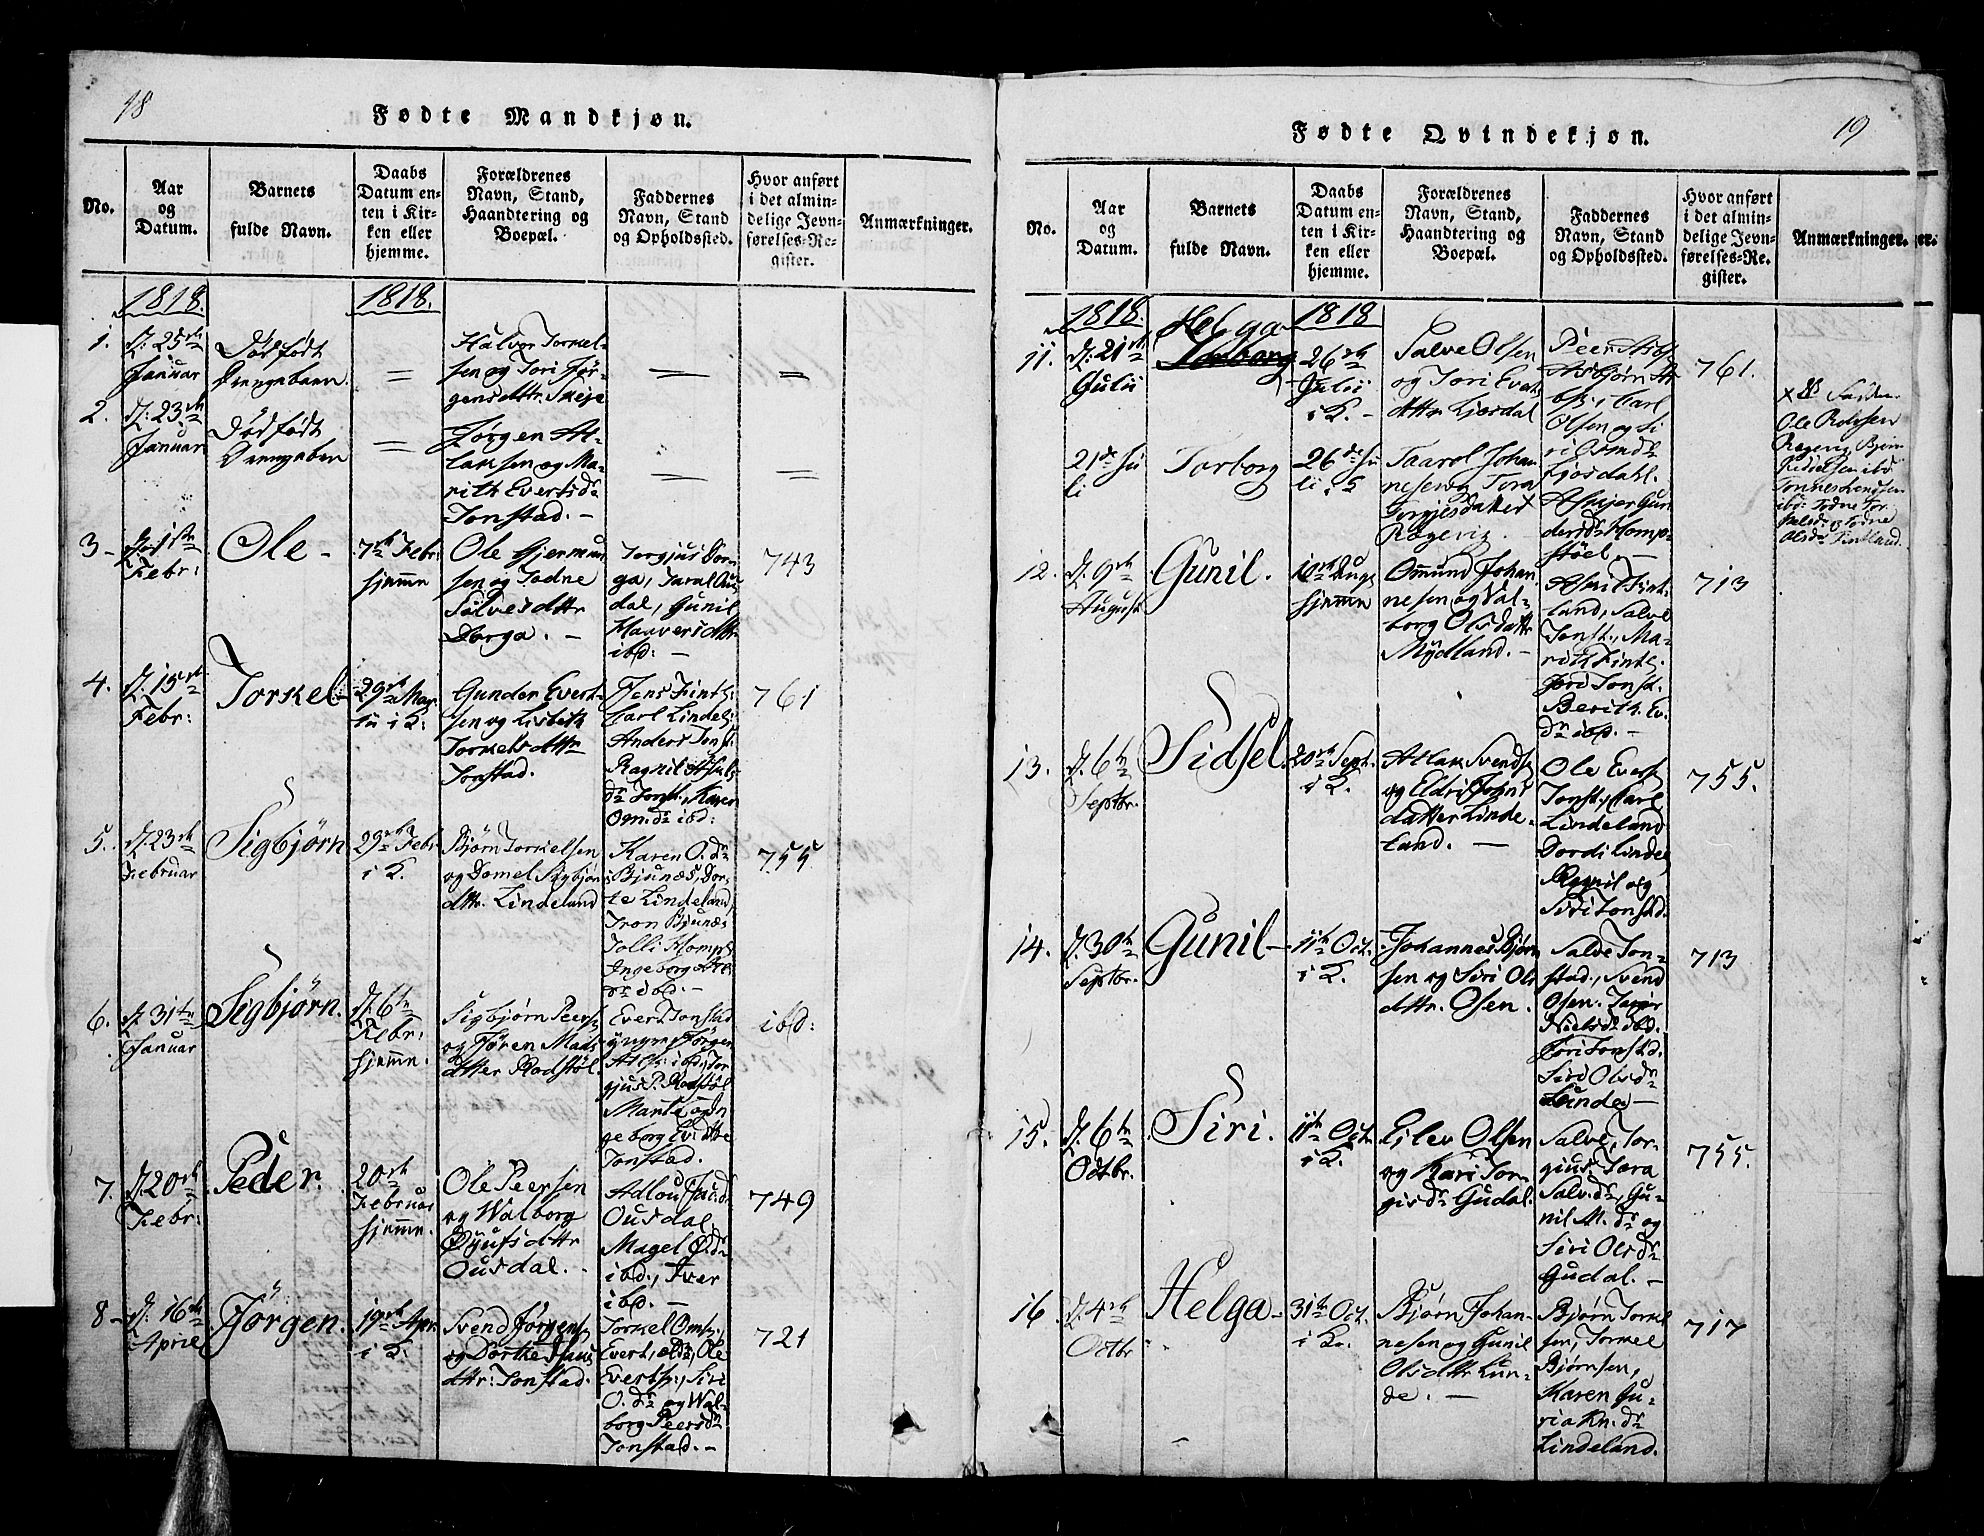 18
Fødte Mandkjøn.
No.
Aar
og
Datum.
Barnets
fulde Navn.
Daabs
Datum en-
ten i Kir-
ken eller
hjemme.
Forældrenes
Navn, Stand,
Haandtering og
Boepæl.
Faddernes
Navn, Stand
og Opholdssted.
Hvor anført
i det almin-
delige Jevn-
førelses-Re-
gister.
Anmærkninger.
1818.
1818.
1.
d: 25de
Januar
Dødfødt
Drengebarn
Halvor Torkel-
sen og Tori Jør-
gensdttr. Skeje
2.
d: 23de
Januar
Dødfødt
Jørgen At-
laksen og Ma-
rith Evertsdr
Tonstad. -
3-
Febr:
Ole-
7de Febr
hjemme
Ole Gjermun-
sen og Todne
Salvesdttr
Dorga. -
Torgjus Dor-
ga, Taral Ous-
dal, Gunil
Haaversdttr
ibd: -
743
4.
d. 15de
Febr:
Torkel
29de Mar-
tii i K:
Gunder Evert-
sen og Lisbeth
Torkelsdttr
Tonstad.
Jens Fintl:
Carl Lindel:
Anders Tonst:
Ragnil Asuls
dr Tonst., Karen
Om.dr ibd:
761
5.
d. 23de
Februar
Sigbjørn
29de Febr
i K.
Bjørn Torkelsen
og Domel Sigbjørns
dttr. Lindeland
Karen O.dr
Bjunæs, Dor-
te Lindeland,
Tron Bjunæs
Tolli Homp
Ingeborg
dr ibd. -
755
6.
d. 31te
Januar
Sigbjørn.
d. 6te
Febr:
hjemme.
Sigbjørn Peers-
og Jøren Mads
datter Rodstøl
Evert Tonstad
yngre, Jørgen
Atls: ibd, Tor-
gjus P. Rodstøl
Marte og In-
geborg Ev.dttre
Tonstad.
ibd:
7.
d. 20de
Febr:
Peder.
20de
Februar
hjemme.
Ole Peersen
og Walborg
Øyufsdttr
Ousdal. -
Ousdal,
Magel O.dr
ibd., Iver
ibd. -
749
8-
d. 16de
Aprile
Jørgen.
19de Apr.
i K.
Svend Jørgens-
og Dorthe
dttr: Tonstad.
Torkel Oms.,
Evert, ældr, Ole
Evertss., Siri
O.dr og Wal-
borg Peersdr
Tonstad. -
721
19
Fødte Qvindekjøn.
No.
Aar
og
Datum.
Barnets
fulde Navn.
Daabs
Datum en-
ten i Kir-
ken eller
hjemme.
Forældrenes
Navn, Stand,
Haandtering og
Boepæl.
Faddernes
Navn, Stand
og Opholdssted.
Hvor anført
i det almin-
delige Jevn-
førelses-Re-
gister.
Anmærkninger.
1818.
1818
11.
d. 21de
Julii
Helga
26de
Julii
i K. -
Salve Olsen
og Tori Everts
dttr. Liosdal
Asbjørn
Carl
Olsen og Si-
ri
Liosdahl.
761.
21de Ju
li
Torborg
26de Ju
li i K
Taarel Johan-
nesen og Tora
Torgjesdatter
Røgevig.
Gun-
dersdr Homp-
støel. -
Ole Rolvsen
Røgevig Bjørn
Tonnes Knudsen
ibd: Todne Tor
Olsdr Fintland.
12.
d. 9de
August
Gunil.
10de Aug.
hjemme
Ommund Johan-
nesen og Wal-
borg Olsdattr
Mydland. -
Asul Fint-
land, Salve
Tonst., Ma-
rith Fintl.
Tori Tonst.
Berith Ev.
dr ibd. -
713
13.
d. 6te
Septbr.
Sidsel
20de Sept.
i K.
Atlak Svends-
og Eldri Johns
datter Linde-
land. -
Ole Everts
Tonst., Carl
Lindeland
Dordi Lindel
Ragnil og
Siri Tonstad.
755.
14.
d. 30te
Septbr.
Gunil-
11te Oct.
i K.
Johannes Bjørn-
sen og Siri Ols
dttr. Osen.
Salve Ton-
stad, Svend
Osen, Tager
Nielsdr ibd.
Tori Tonstad.
Siri Olsdr
Lunde -
713
15.
d. 6te
Octbr.
Siri.
11te Oct.
i K.
Ejlev Olsen
og Kari Tor-
gisdr Gudal.
Salve, Tor-
gius, Tara
Salv.dr, Gu-
nil M.dr og
Siri Olsdr
Gudal. -
755.
16.
d. 4de
Octbr
Helga-
31te Oct.
i K.
Bjørn Johan-
nesen og Gunil
Olsdttr Lun-
de. -
Bjørn Torkel
sen, Torkel
Bjørnsen,
Karen Gu-
ria Kn.dr
Lindeland.
717